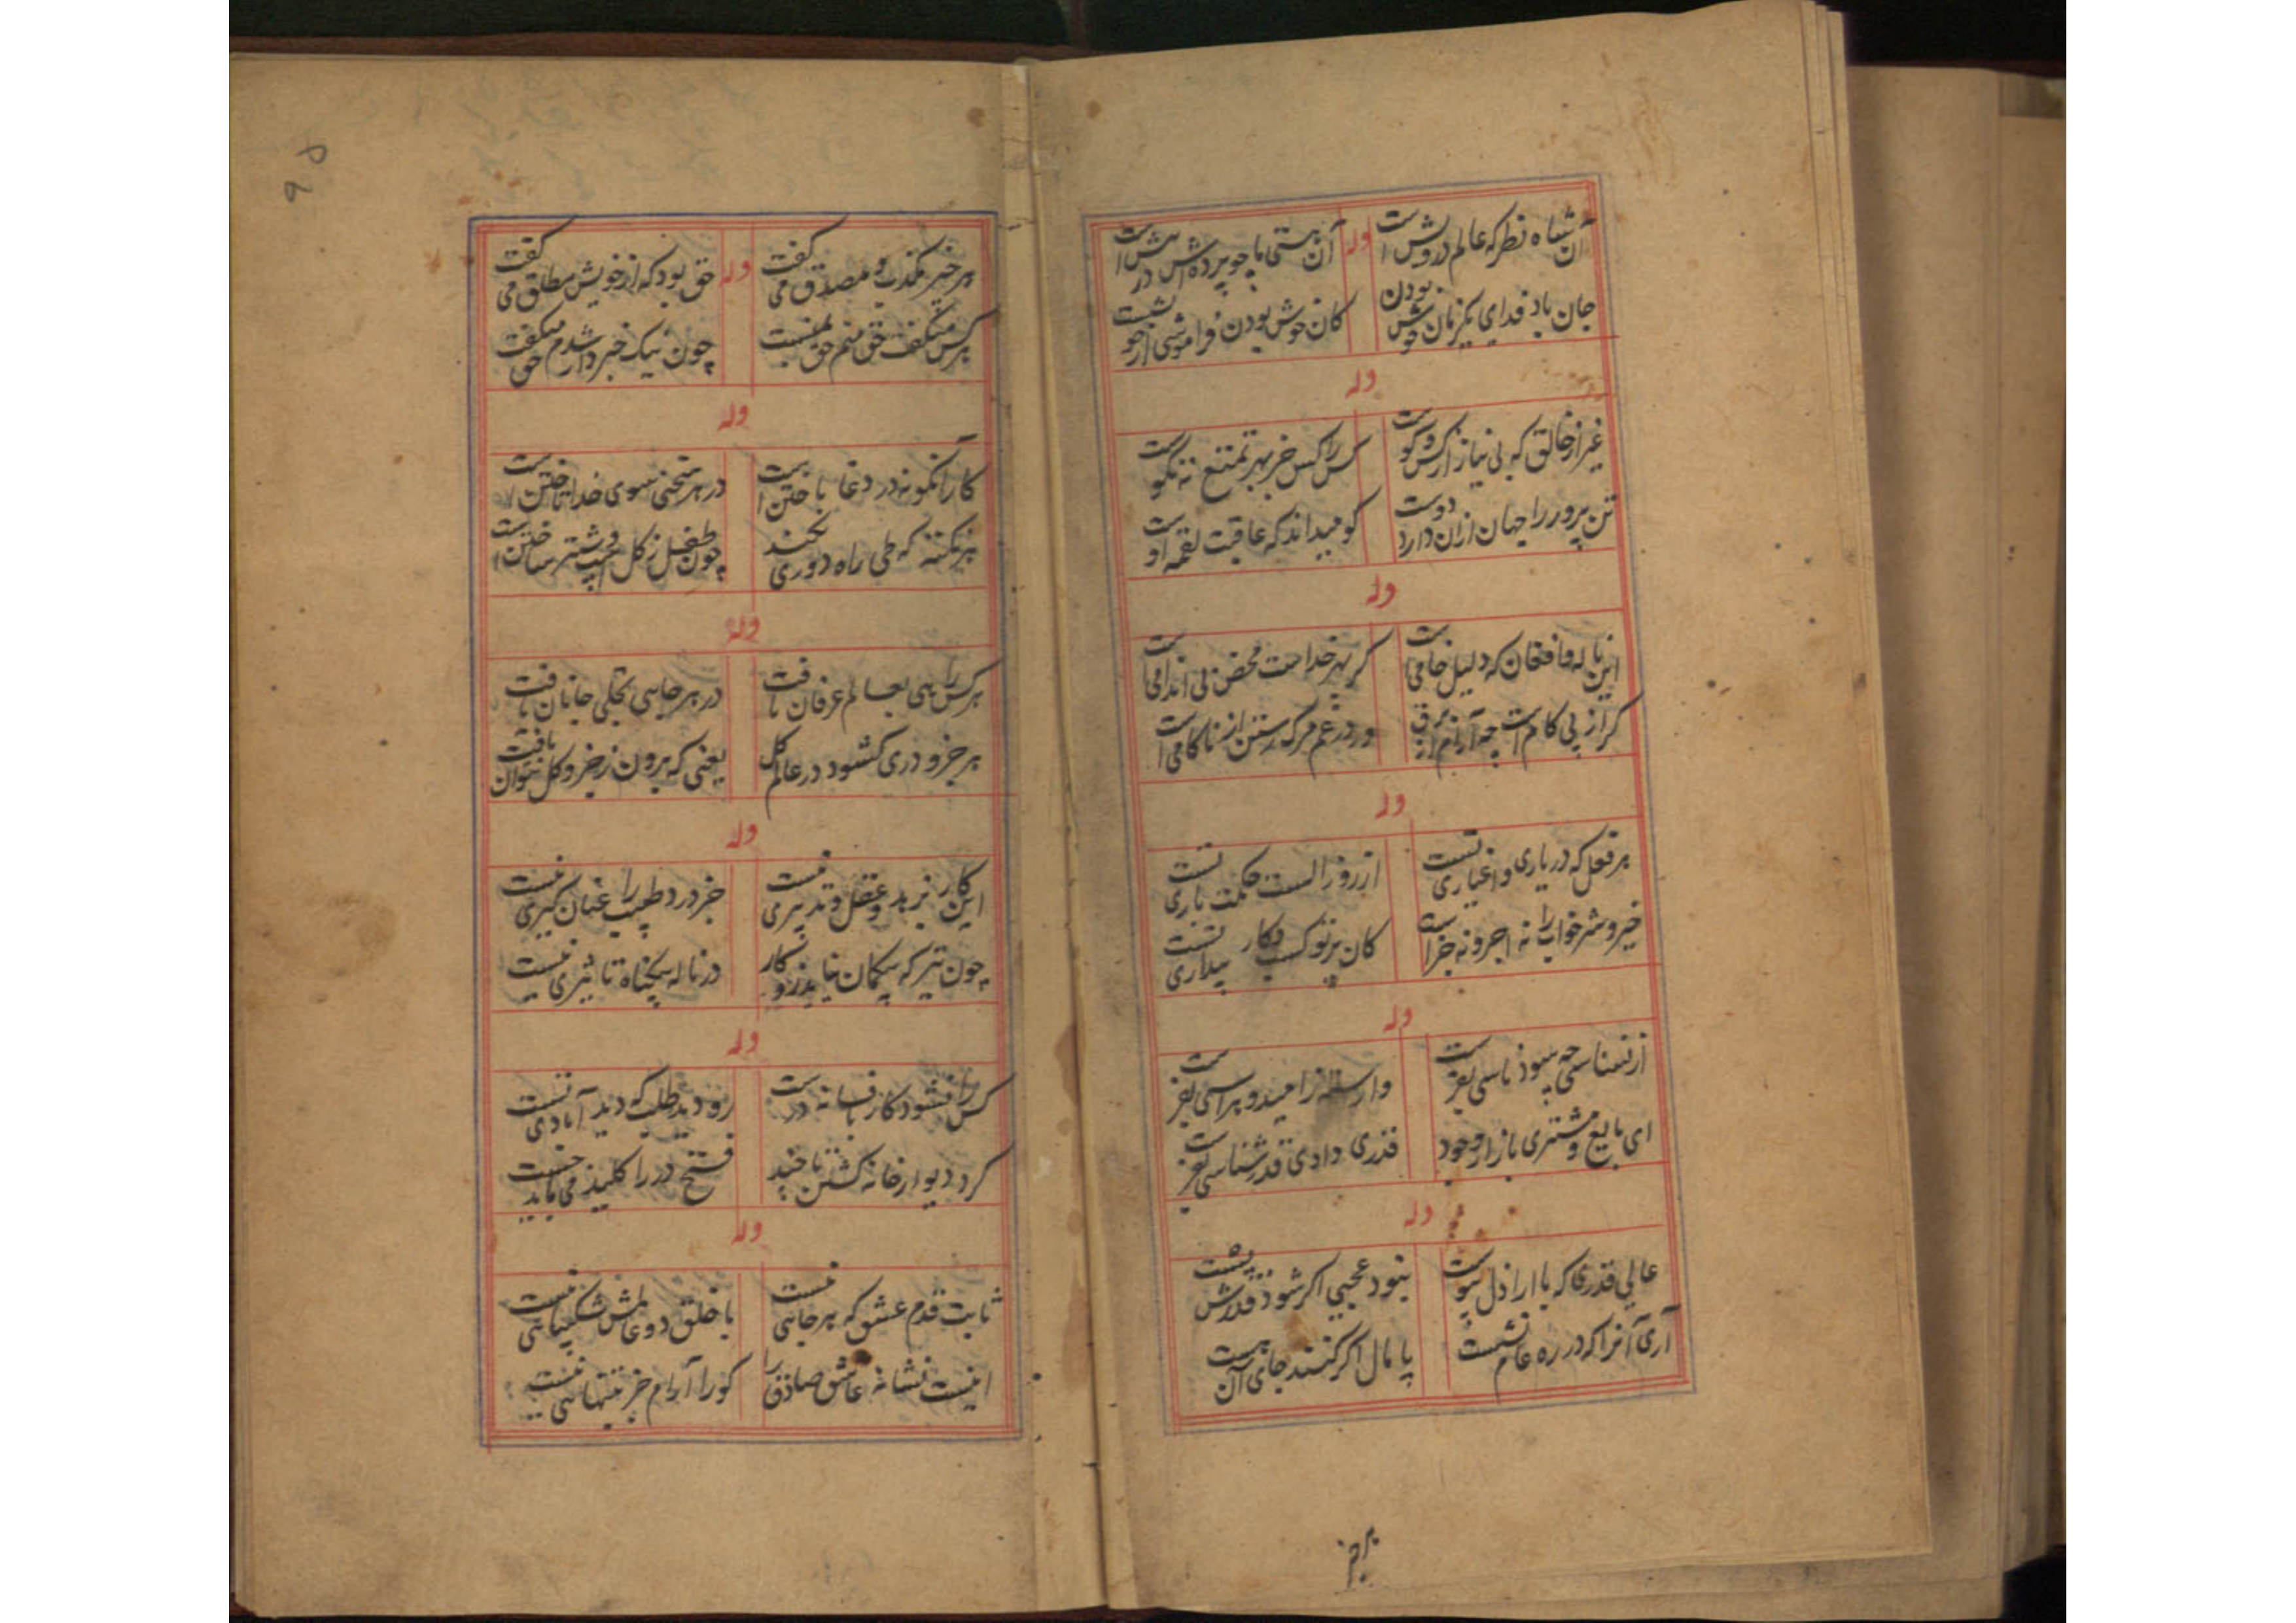 آن شاه نظر که عالم درویش است
وله
آن هستی ما چو پرده اش در پیش است
جان باد فدای یکزمان خوش بودن
کان خوش بودن فراموشی از
وله
غیر از خالق که بی نیاز از کس و کوست
کس را کس جز بهر تمتع نه نکوست
تن پرور را جهان ازان دارد دوست
کو میداند که عاقبت لقمه اوست
وله
این ناله و افغان که دلیل خامی است
کر بهر خداست محض بی اندامی است
کر از پی کام است چه آرام از برق
ور در غم مرک رستن از ناکامی است
وله
هر فعل که در یاری و اغیاری تست
از روز الست حکمت باری تست
خیر و شر خواب را نه اجر و نه جزاست
کان پرتو کسب و کار بیداری تست
وله
از نسناسی چه سود ناسی بفرست
وارسته ز امید و هراسی بفرست
ای بایع و مشتری بازار وجود
قدری دادی قدرشناسی بفرست
وله
عالی قدری که با اراذل پیوست
نبود عجبی اکر شود قدرش پست
آری آنرا که در ره عام نشست
پامال اکر کنند جای آن هست
برخ
هر خبر مکذب و مصدق می کفت
وله
حق بود که از خویش مطلق می کفت
هر کس میکفت حق منم حق
چون نیک خبردار شدم حق میکفت
وله
کار آنکونه در دغا باختن است
در هر سخنی سوی خدا تاختن است
هر نکته که طی راه دوری نکند
چون طفل ز کل اسپ و شتر ساختن است
وله
هر کس راهی بعالم عرفان یافت
در هر جایی تجلی جانان یافت
هر جزو دری کشود در عالم کل
یعنی که برون ز جزو و کل نتوان یافت
وله
این کار بزهد و عقل و تدبیری نیست
جز درد طبیب را عنان کیری نیست
چون تیر که بیکمان نیاید زو کار
در ناله بیکناه تاثیری نیست
وله
کس را نشود کار بافسانه درست
رو دیده طلب که دید آبادی تست
کرد دیوار خانه کشتن تا چند
فتح در را کلید می باید جست
وله
ثابت قدم عشق که هر جایی نیست
با خلق دو عالمش شکیبایی نیست
اینست نشانه عاشق صادق را
کورا آرام جز بتنهایی نیست